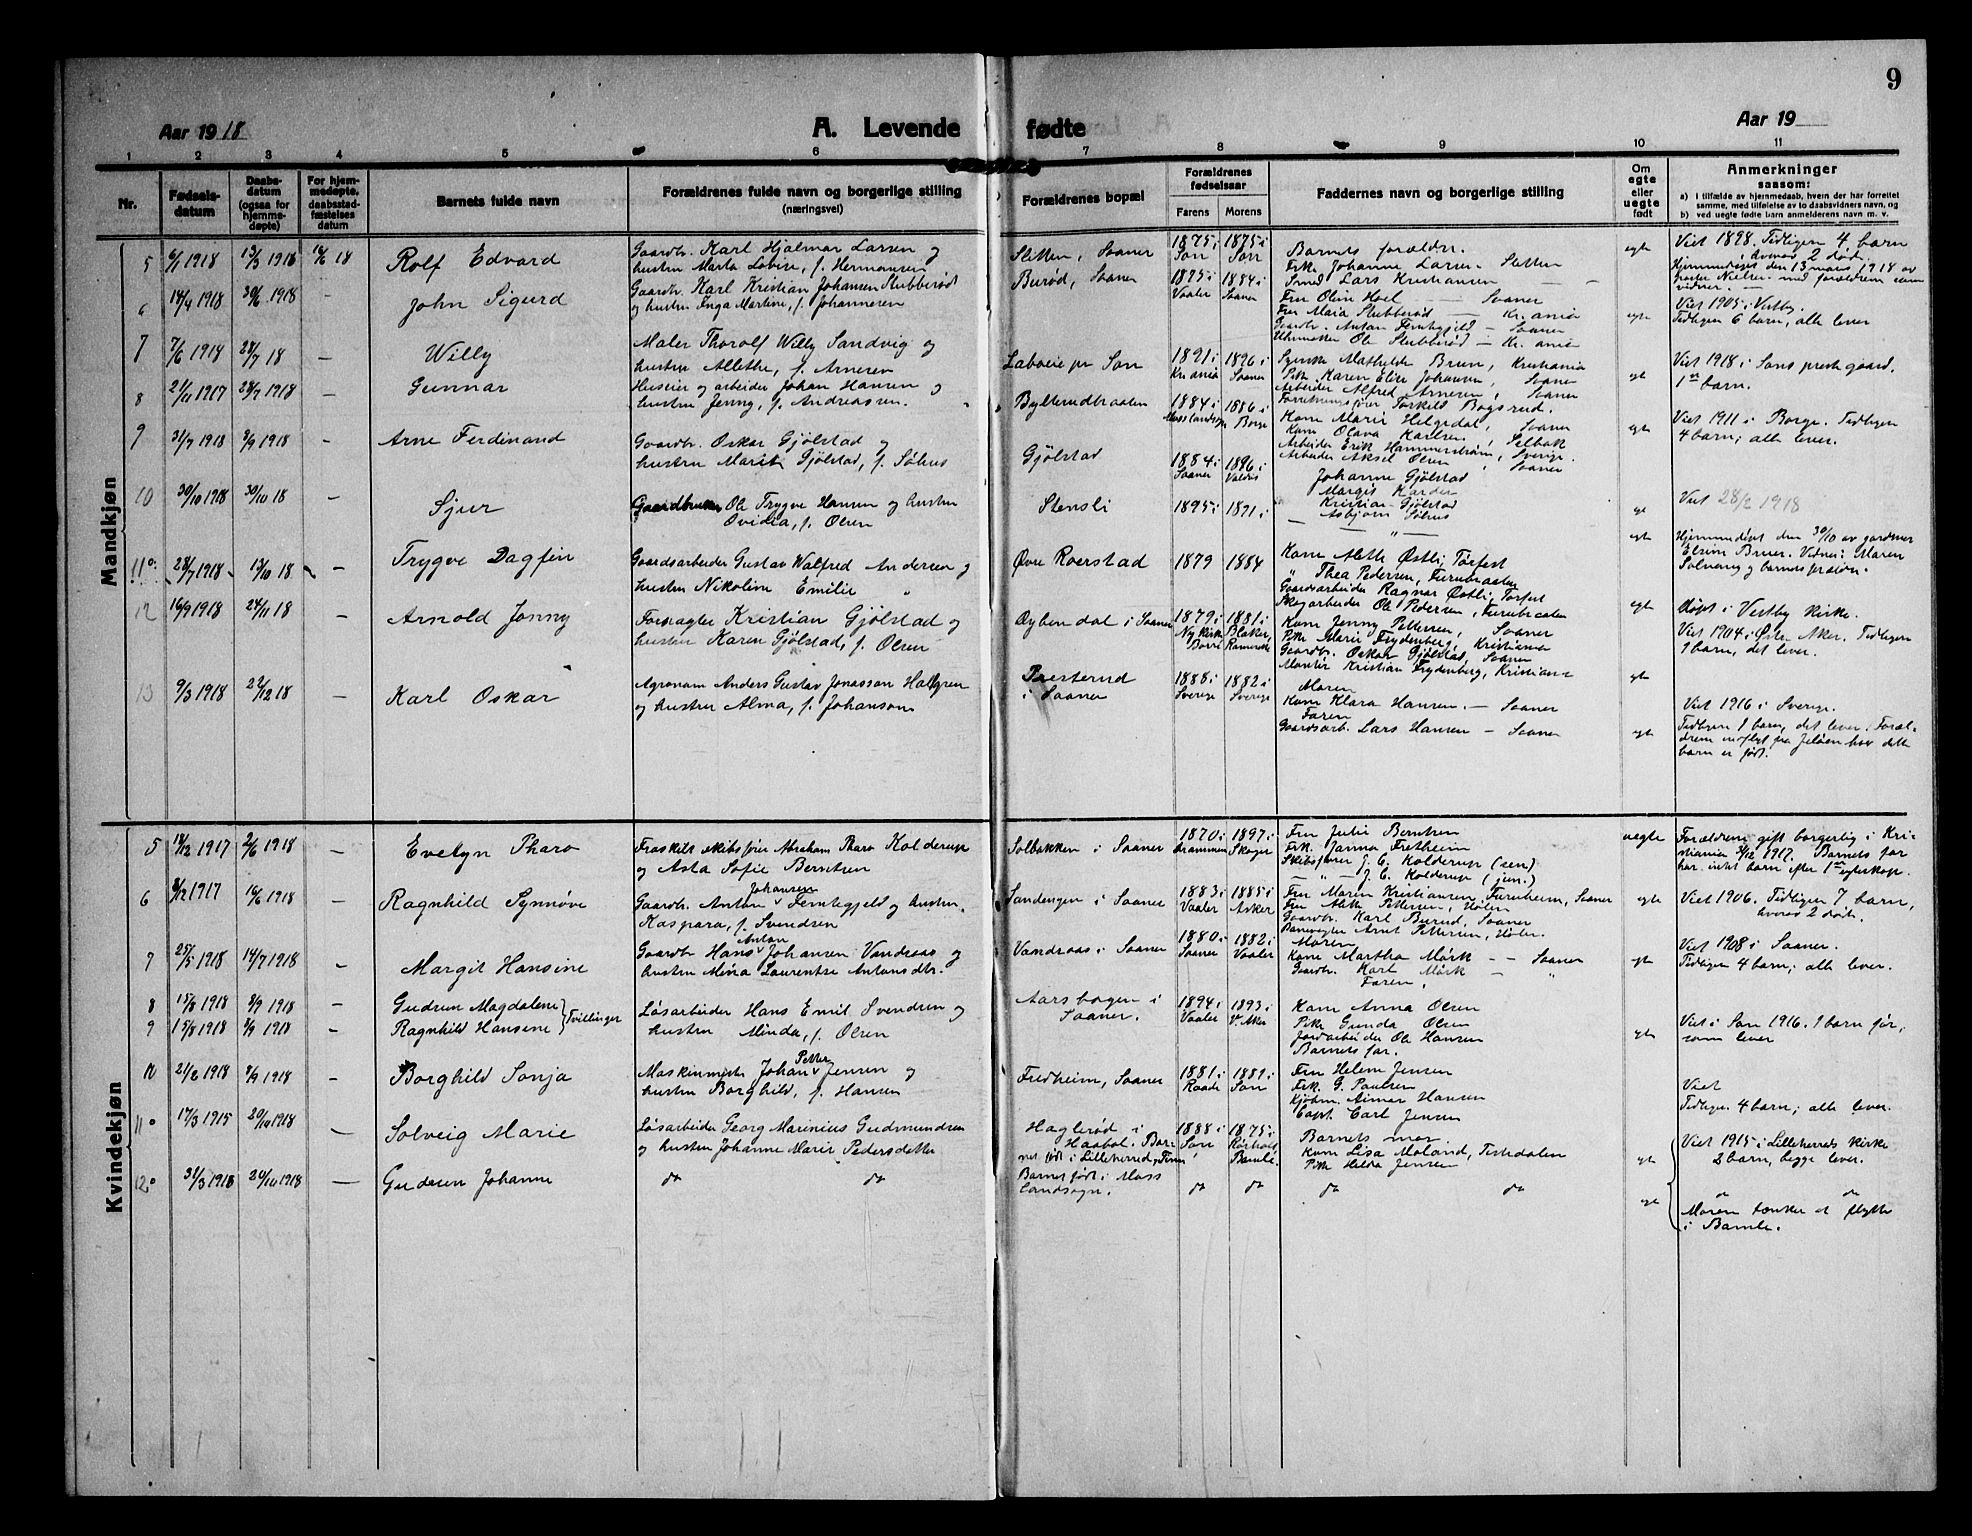 9
Aar 1918
A. Levende fødte
Aar 19
1 2 3 4 5 6 7 8 9 10 11
Nr.
Fødsels-
datum
Daabs-
datum
(ogsaa for
hjemme-
døpte)
For hjem-
medøpte,
daabsstad-
fæstelses
datum
Barnets fulde navn
Forældrenes fulde navn og borgerlige stilling
(næringsvei)
Forældrenes bopæl
Forældrenes
fødselsaar
Farens Morens
Faddernes navn og borgerlige stilling
Om
egte
eller
uegte
født
Anmerkninger
saasom:
a) i tilfælde av hjemmedaab, hvem der har forrettet
samme, med tilføielse av to daabsvidners navn, og
b) ved uegte fødte barn anmelderens navn m. v.
Mandkjøn
5 6/1 1918 13/3 1918 16/6 18
Rolf Edvard
Gaardbr. Karl Hjalmar Larsen og
hustru Marta Lovise, f. Hermansen
Sletten, Saaner
1875 i Son 1875 i Son
Barnets forældre.
Frk. Johanne Larsen - Sletten
egte
Viet 1898. Tidligere 4 barn
, hvorav 2 døde.
Hjemmedøpt den 13 mars 1918 av
6 14/4 1918 30/6 1918 -
John Sigurd
Gaardbr. Karl Kristian Johansen Stubberød
og hustru Inga Martine, f. Johannesen
Burød, Saaner
1875 i Vaaler 1884 i Saaner
Smed Lars Kristiansen
Fru Olem Hoel - Saaner
Fru Maria Stubberød - Kr.ania
Gaardbr. Anton Femtegjeld - Saaner
Uhrmaker Ole Stubberød - Kr. ania
egte
Viet 1905 i Vestby
Tidligere 6 barn, alle lever
7 7/6 1918 28/7 18 -
Willy
Maler Thorolf Willy Sandvig og
hustru Allethe, f. Arnesen
Labveie pr Son
1891 i Kr.ania 1896 i Saaner
Syerske Mathilde Brun, Kristiania
Pike Karen Elise Johansen, Saaner
Arbeider Alfred Arnesen, Saaner
Forretningsfører Torkild Bogsrud.
egte
Viet 1918 i Sons prestegaard.
1ste barn.
8 21/11 1917 28/7 1918 -
Gunnar
Huseier og arbeider Johan Hansen og
hustru Jenny, f. Andreassen.
Bylterudbraaten
1884 i 1886 i Borge
Kone Marie Helgedal, Saaner
Kone Olava Karlsen, Selbak
Arbeider Erik Hammerstrøm, Sverige.
Arbeider Aksel Olsen, Saaner
egte
Viet 1911 i Borge. Tidligere
4 barn; alle lever.
9 31/7 1918 8/9 1918 -
Arne Ferdinand
Gaardbr. Oskar Gjølstad og
hustru Marit Gjølstad, f. Søhus
Gjølstad
1884 i Saaner 1896 i Valdris
Johanne Gjølstad
Margit Karder
Kristian Gjølstad
Asbjørn Søhus
egte
Viet 28/2 1918
10 30/10 1918 30/10 18 -
Sjur
Gaardbruker Ole Trygve Hansen og hustru
Ovidia, f. Olsen
Stensli
1895 i 1891 i
- " -
egte
Hjemmedøpt den 30/10 av gardmor
Elsine Bruer. Vidner: Maren
Solverg og barnets far.
11 28/7 1918 13/10 18 -
Trygve Dagfin
Gaardsarbeider Gustav Walfred Andersen og
hustru Nikoline Emilie "
Øvre Roerstad
1879 1884
Kone Aleth Østli, Torfest
" Thea Pedersen, Furubraaten
Gaardsarbeider Ragnar Østli, Torfest
Skogarbeider Ole Pedersen, Furubraaten
egte
Døpt i Vestby kirke.
12 16/9 1918 24/11 18 -
Arnold Jonny
Forpagter Kristian Gjølstad og
hustru Karen Gjølstad, f. Olsen
Oybendal i Saaner
1879 i Nykirke Borre 1881 i Blaker,
Kone Jenny Pettersen, Saaner
Pike Marie Frydenberg, Kristiania
Gaardbr. Oskar Gjølstad, Saaner
Montør Kristian Frydenberg, Kristiania
egte
Viet 1904 i Østre Aker. Tidligere
1 barn, det lever.
13 9/3 1918 22/12 18 -
Karl Oskar
Agronom Anders Gustav Jonasson Hallgren
og hustru Alma, f. Johanson
Presterud
i Saaner
1888 i Sverige 1882 i Sverige
Moren
Kone Klara Hansen. - Saaner
Faren
Gaardsarb. Lars Hansen - Saaner
egte
Viet 1916 i Sverige.
Tidligere 1 barn, det lever. Foræl-
drene indflyt fra Jeløen hvor dette
barn er født.
Kvindekjøn
5 18/12 1917 2/6 1918 -
Evelyn Pharo
Fraskilt skibsfører Abraham Pharo Kolderup
og Asta Sofie Berntsen
Solbakken i Saaner
1870 i Drammen 1897 i Skoger
Fru Julie Berntsen
Frk. Janna Fretheim
Skibsfører J. C. Kolderup (sen)
- " - J. C. Kolderup (jun.)
uegte
Forældrene gift borgerlig i Kri-
stiania 3/12 1917. Barnets far
har intet barn efter 1ste egteskap.
6 8/12 1917 16/6 1918 -
Ragnhild Synnøve
Gaardbr. Anton Johansen Femtegjeld og hustru
Kaspara, f. Svendsen
Sandengen i Saaner
1883 i Vaaler 1885 i Asker
Fru Maren Kristiansen, Furuheim, Saaner
Fru Aleth Pettersen, Hølen
Gaardbr. Karl Burud, Saaner
Banevogter Arnt Pettersen, Hølen.
egte
Viet 1906. Tidligere 7 barn,
hvorav 2 døde.
7 25/5 1918 14/7 1918 -
Margit Hansine
Gaardbr. Hans Anton Johansen Vandraas og
hustru Mina Laurentse Antonsdtr.
Vandraas i Saaner
1880 i Saaner 1882 i Vaaler
Moren
Kone Martha Mørk - - Saaner
Gaardbr. Karl Mørk - "
Faren,
egte
Viet 1908 i Saaner.
Tidligere 4 barn; alle lever.
8 15/8 1918 8/9 1918 -
Gudrun Magdalene
9 15/8 1918 8/9 1918 -
Ragnhild Hansine
Tvillinger
Løsarbeider Hans Emil Svendsen og
hustru Minda, f. Olsen
Aarsbogen i
Saaner.
1894 i Vaaler 1893 i V. Aker
Kone Anna Olsen
Pike Gunda Olsen
Jordarbeider Ole Hansen
Barnets far.
egte
Viet i Son 1916. 1 barn før,
som lever
10 21/6 1918 8/9 1918 -
Borghild Sonja
Maskinmester Johan Petter Jensen og
hustru Borghild, f. Hansen
Fredheim, Saaner
1881 i Raade 1881 i Son
Fru Helene Jensen
Frk. G. Paulsen
Kjøbm. Aimar Hansen
Capt. Carl Jensen
Viet
Tidligere 4 barn; alle lever.
11 17/3 1915 20/10 1918 -
Solveig Marie
Løsarbeider Georg Marinius Gudmundsen
og hustru Johanne Marie Pedersdatter
Haglerød i
Haabøl. Bar-
net født i Lilleherred,
1888 i Son 1875 i Bamle
Barnets mor
Kone Lisa Moland, Tistedalen
Pike Helda Jensen
egte
Viet 1915 i Lilleherreds kirke
2 barn, begge lever.
12 31/3 1918 20/10 1918 -
Guderun Johanne
do do
Barnet født i Moss
landsogn.
do do
do do
egte
do do
Moren tænker at flytte
i Bamle.